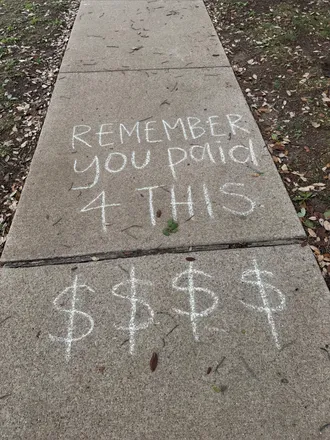 REMEMBER
you paid
4 THIS
$ $ $ $